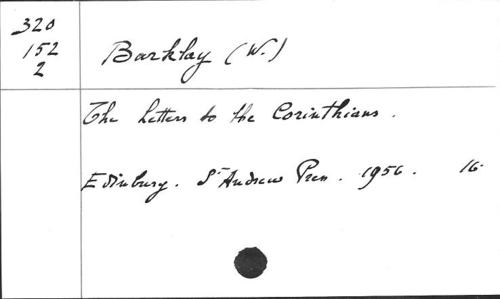 320
152
2
Barklay (W.)
The Letters to the Corinthians.
Edinburg. St Andrew Press. 1956. 16.